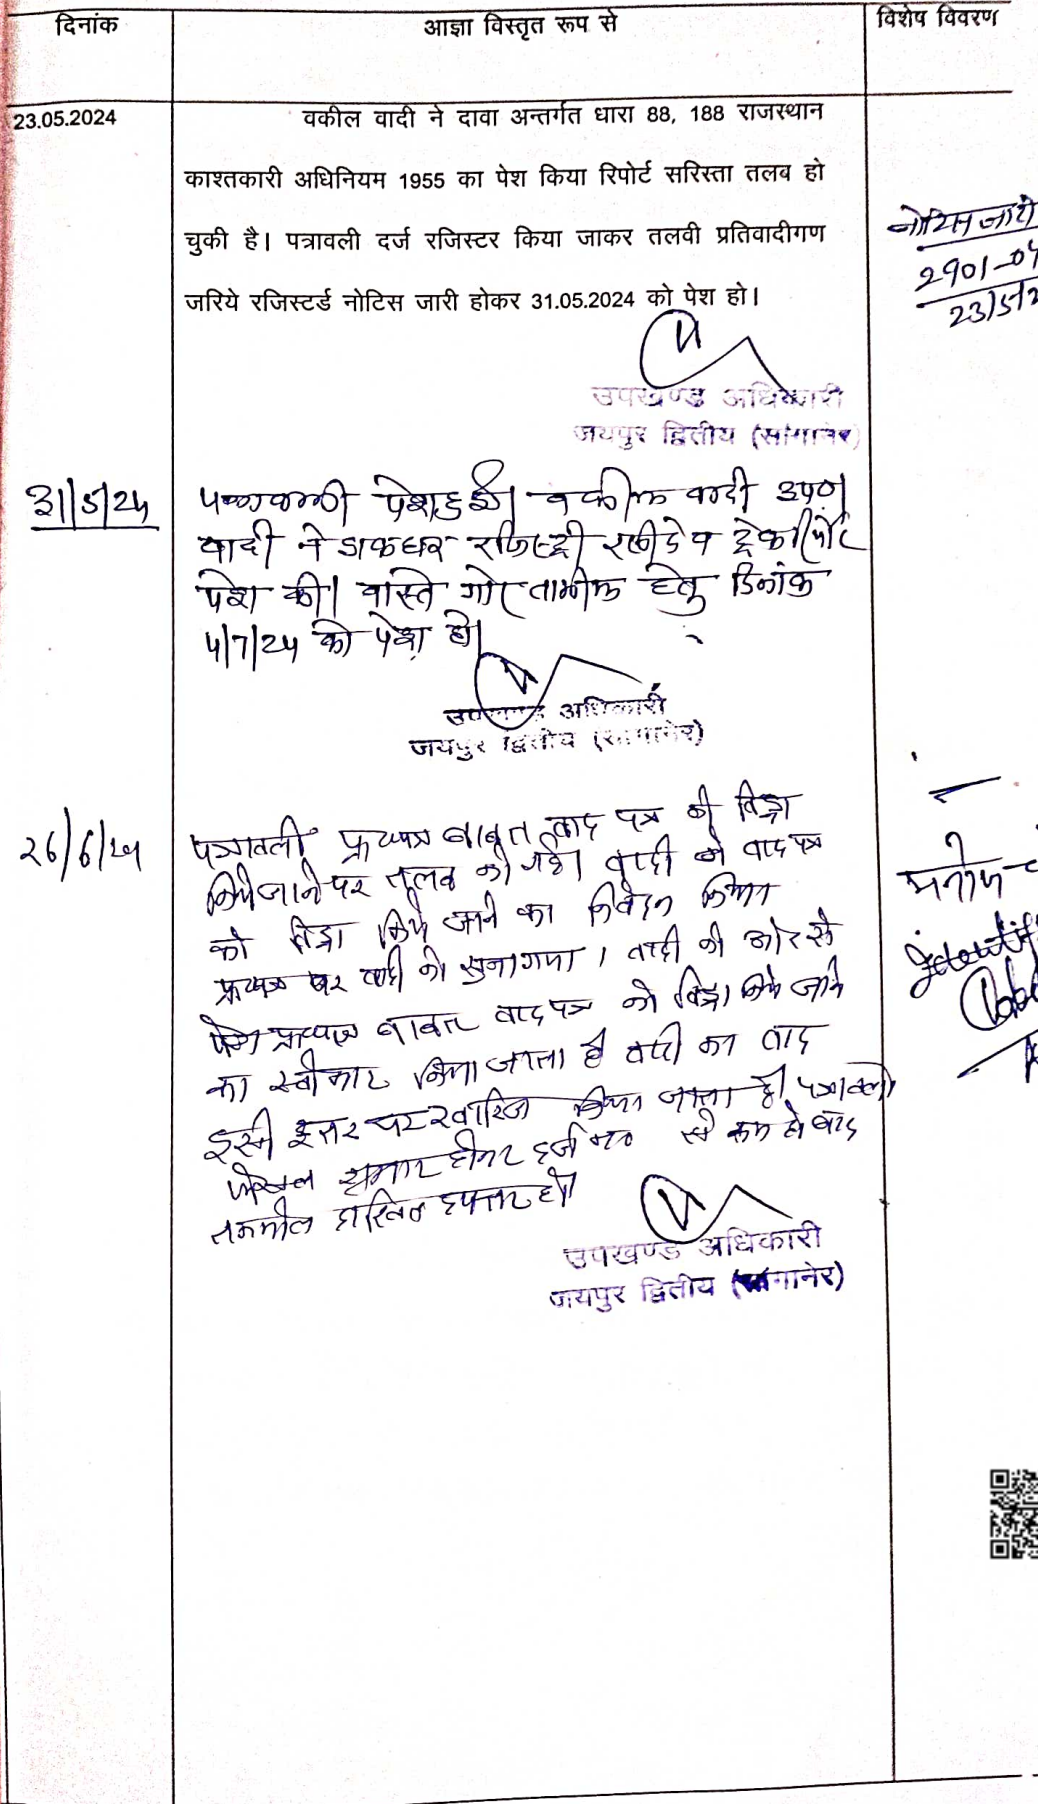 दिनांक
आज्ञा विस्तृत रूप से
विशेष विवरण
23.05.2024
वकील वादी ने दावा अन्तर्गत धारा 88, 188 राजस्थान
काश्तकारी अधिनियम 1955 का पेश किया रिपोर्ट सरिस्ता तलब हो
चुकी है। पत्रावली दर्ज रजिस्टर किया जाकर तलवी प्रतिवादीगण
जरिये रजिस्टर्ड नोटिस जारी होकर 31.05.2024 को पेश हो।
नोटिस जारी
2901-04
23/5/2
उपखण्ड अधिकारी
जयपुर द्वितीय (सांगानेर)
31/5/24
पत्रावली पेश हुई। वकील वादी उप०।
वादी ने डाकघर रजिस्ट्री रसीदे व ट्रेक रिपोर्ट
पेश की। वास्ते गौर तामील हेतु दिनांक
4/7/24 को पेश हो।
उपखण्ड अधिकारी
जयपुर द्वितीय (सांगानेर)
26/6/24
पत्रावली प्रा०पत्र बाबत वाद पत्र को विड्रा
किये जाने पर तलब की गई। वादी ने वाद पत्र
को विड्रा किये जाने का निवेदन किया
प्रा०पत्र पर वादी को सुना गया। वादी की ओर से
पेश प्रा०पत्र बाबत वाद पत्र को विड्रा किये जाने
का स्वीकार किया जाता है वादी का वाद
इसी स्तर पर खारिज किया जाता है। पत्रावली
फैसल शुमार होकर दर्ज नम्बर से कम हो बाद
तकमील दाखिल दफ्तर हो।
मनोज
उपखण्ड अधिकारी
जयपुर द्वितीय (सांगानेर)